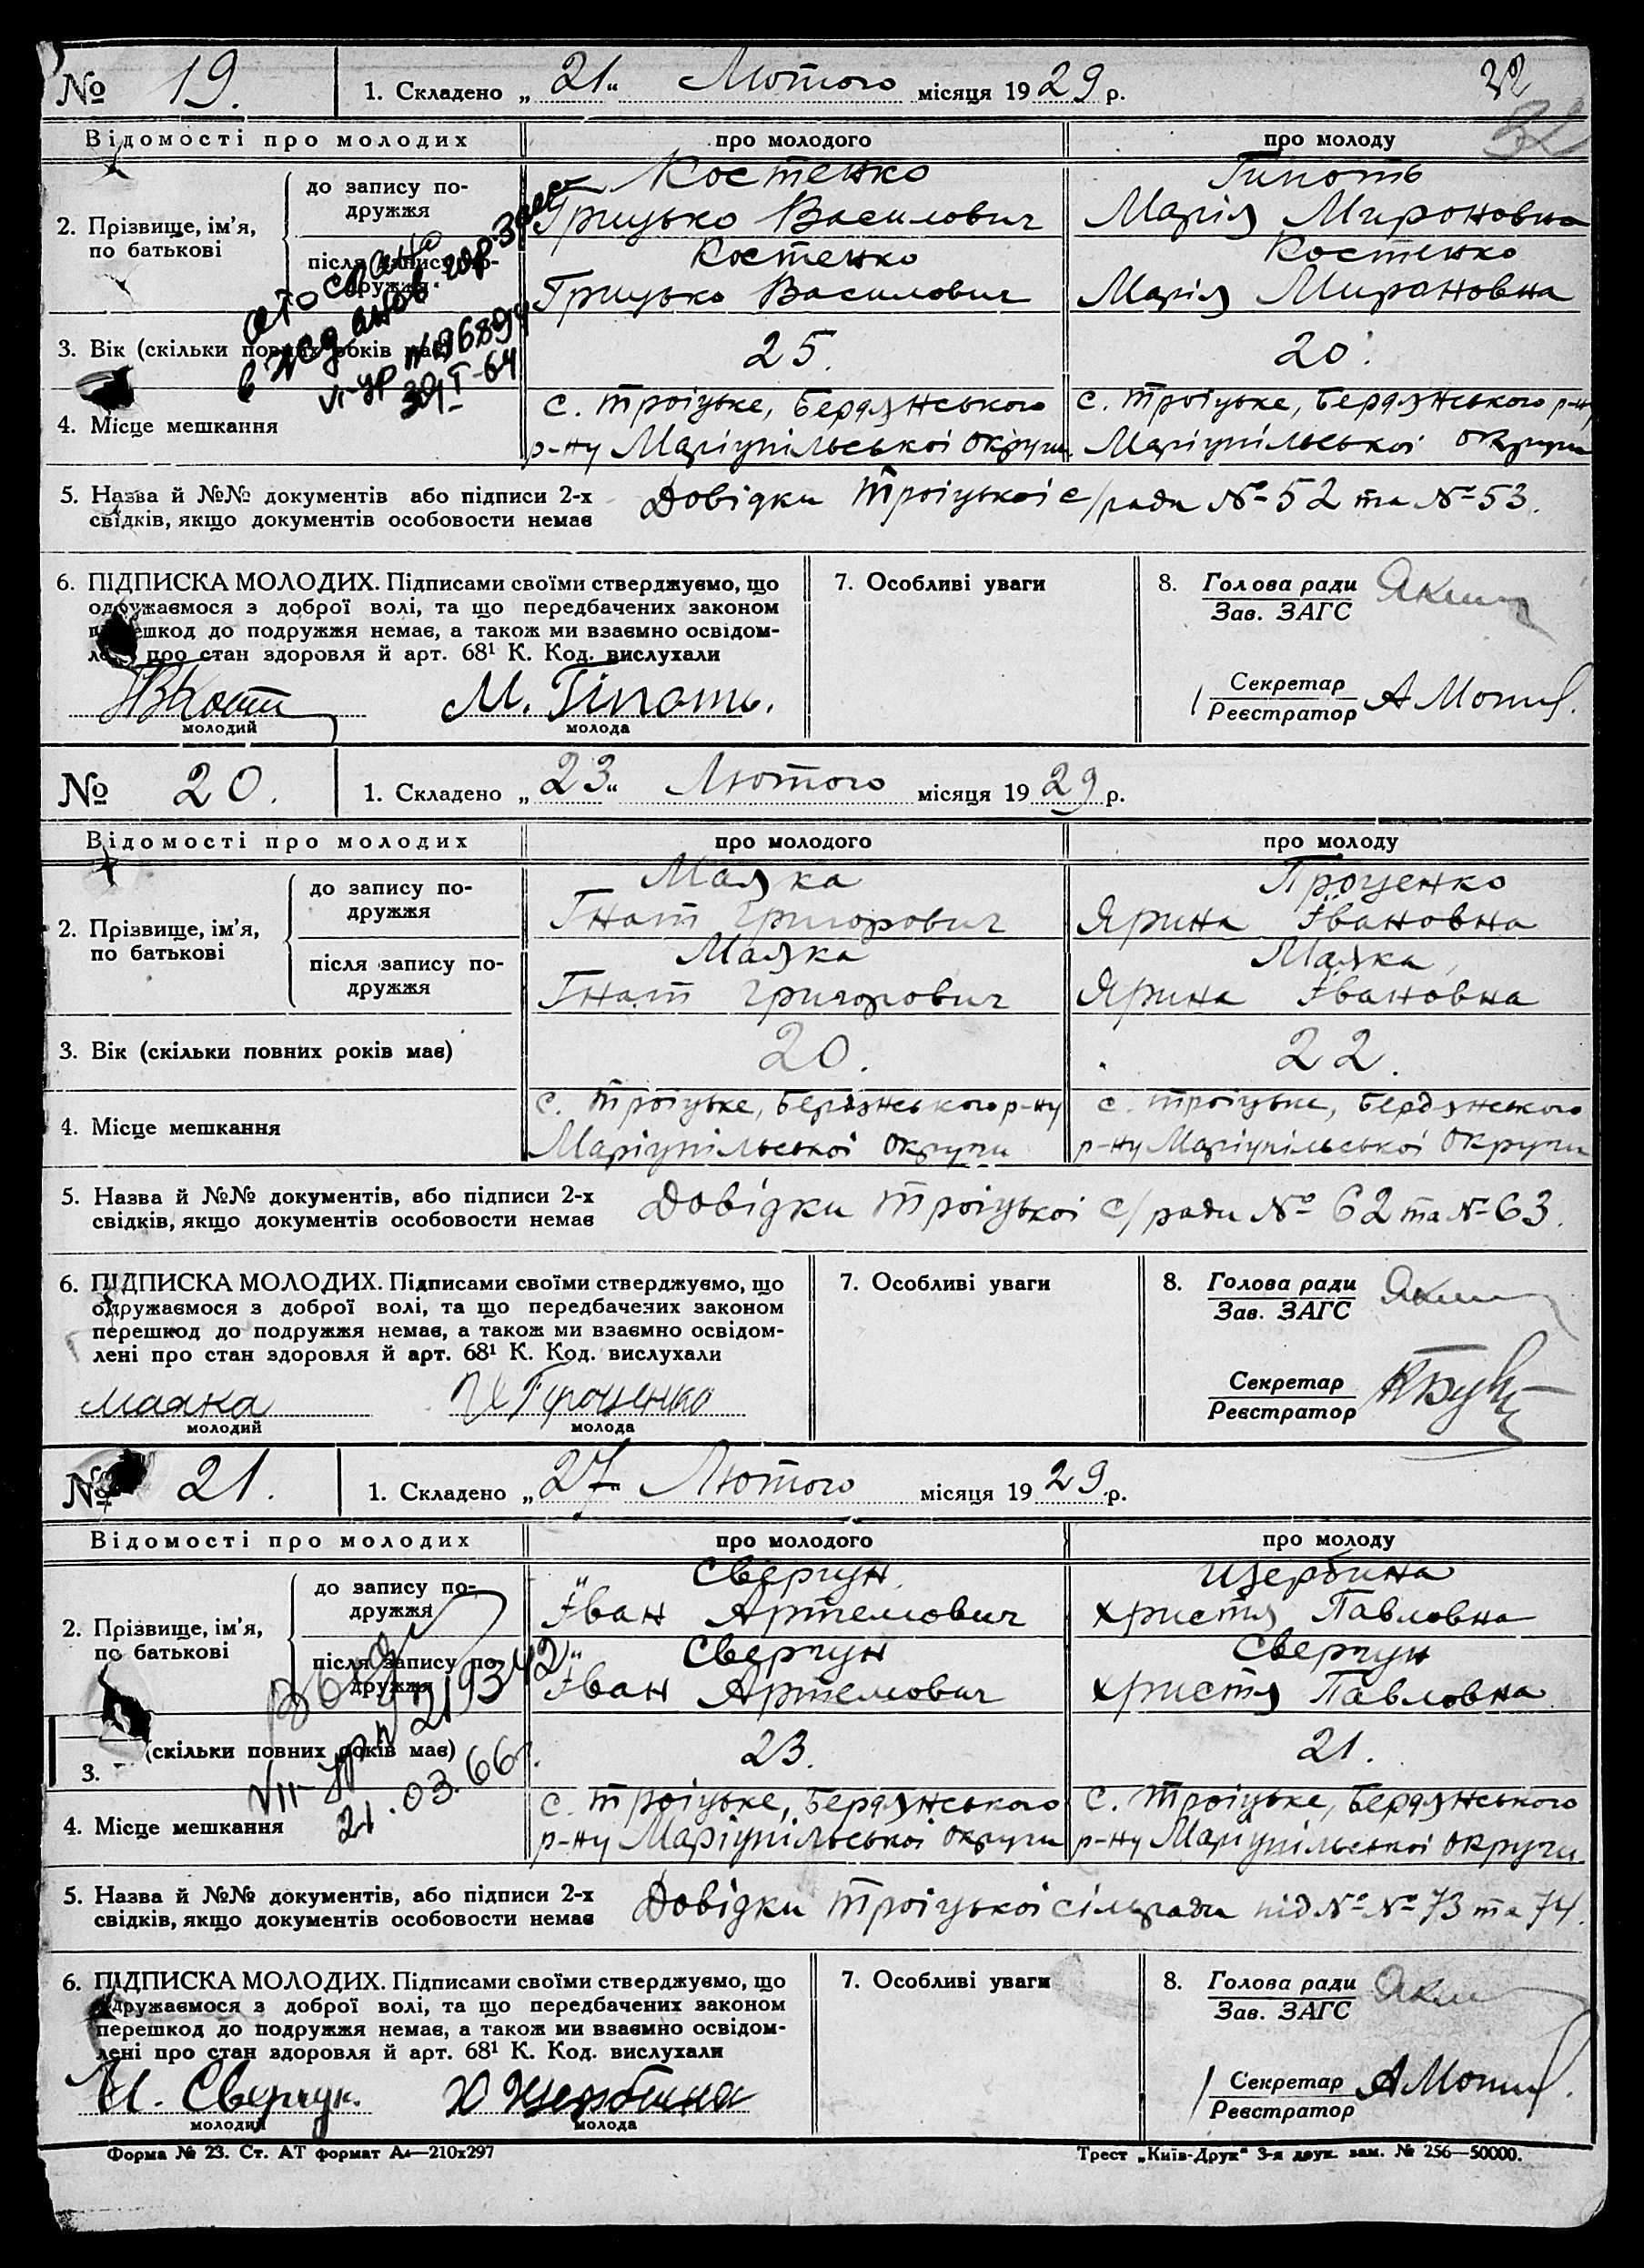 № 19. 1. Складено „21“ Лютого місяця 1929 р. 32
32
Відомості про молодих про молодого про молоду
2. Прізвище, ім’я, по батькові
до запису по-дружжя
Костенко Гипоть
Грицько Василович Марія Мироновна
після запису по-дружжя
Костенко Костенко
Грицько Василович Марія Мироновна
3. Вік (скільки повних років має) 25. 20.
4. Місце мешкання
с. Троіцьке, Бердянського с. Троіцьке, Бердянського р-ну
р-ну Маріупільськоі округи Маріупільськоі округи
в Жданов. гор. Загс
VI-УР № 6894
30/I-64
5. Назва й №№ документів або підписи 2-х
свідків, якщо документів особовости немає
Довідки Троіцькоі с/ради № 52 та № 53.
6. ПІДПИСКА МОЛОДИХ. Підписами своїми стверджуємо, що
одружаємося з доброї волі, та що передбачених законом
перешкод до подружжя немає, а також ми взаємно освідом-
лені про стан здоровля й арт. 68¹ К. Код. вислухали
М. Гіпоть.
молодий молода
7. Особливі уваги
8. Голова ради
Зав. ЗАГС
Секретар
Реєстратор
№ 20. 1. Складено „23“ Лютого місяця 1929 р.
Відомості про молодих про молодого про молоду
2. Прізвище, ім’я, по батькові
до запису по-дружжя
Маяка Проценко
Гнат Григорович Ярина Івановна
після запису по-дружжя
Маяка Маяка
Гнат Григорович Ярина Івановна
3. Вік (скільки повних років має) 20. 22.
4. Місце мешкання
с. Троіцьке, Бердянського р-ну с. Троіцьке, Бердянського
Маріупільськоі округи р-ну Маріупільськоі округи
5. Назва й №№ документів, або підписи 2-х
свідків, якщо документів особовости немає
Довідки Троіцькоі с/ради № 62 та № 63.
6. ПІДПИСКА МОЛОДИХ. Підписами своїми стверджуємо, що
одружаємося з доброї волі, та що передбачених законом
перешкод до подружжя немає, а також ми взаємно освідом-
лені про стан здоровля й арт. 68¹ К. Код. вислухали
маяка Проценко
молодий молода
7. Особливі уваги
8. Голова ради
Зав. ЗАГС
Секретар
Реєстратор
№ 21. 1. Складено „27“ Лютого місяця 1929 р.
Відомості про молодих про молодого про молоду
2. Прізвище, ім’я, по батькові
до запису по-дружжя
Сверчун Щербина
Іван Артемович Христя Павловна
після запису по-дружжя
Сверчун Сверчун
Іван Артемович Христя Павловна
3. (скільки повних років має) 23. 21.
4. Місце мешкання
с. Троіцьке, Бердянського с. Троіцьке, Бердянського
р-ну Маріупільськоі округи р-ну Маріупільськоі округи
219342
21.03.66
5. Назва й №№ документів, або підписи 2-х
свідків, якщо документів особовости немає
Довідки Троіцькоі сільради під №№ 73 та 74.
6. ПІДПИСКА МОЛОДИХ. Підписами своїми стверджуємо, що
одружаємося з доброї волі, та що передбачених законом
перешкод до подружжя немає, а також ми взаємно освідом-
лені про стан здоровля й арт. 68¹ К. Код. вислухали
И. Сверчук. Х Щербина
молодий молода
7. Особливі уваги
8. Голова ради
Зав. ЗАГС
Секретар
Реєстратор
Форма № 23. Ст. АТ формат А4—210х297
Трест „Київ-Друк“ 3-я друк. зам. № 256—50000.